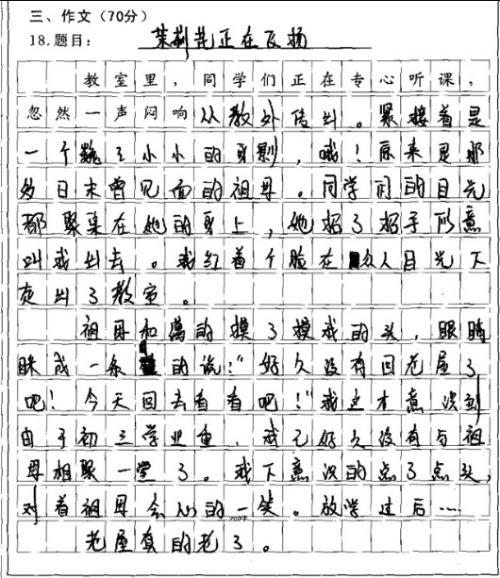 三、作文（70分）
18.题目： 茉莉花正在飞扬
教室里，同学们正在专心听课，
忽然一声闷响从教外传出。紧接着是
一个巍了小小的身影，哦！原来是那
多日未曾见面的祖母。同学们的目光
都聚集在她的身上，她招了招手示意
叫我出去。我红着个脸在众人目光下
走出了教室。
祖母和蔼的摸了摸我的头，眼睛
眯成一条的说：“好久没有回老屋了
吧！今天回去看看吧！”我这才意识到
由于初三学业重，我已好久没有与祖
母相聚一堂了。我下意识的点了点头，
对着祖母会心的一笑。放学过后……
老屋真的老了。